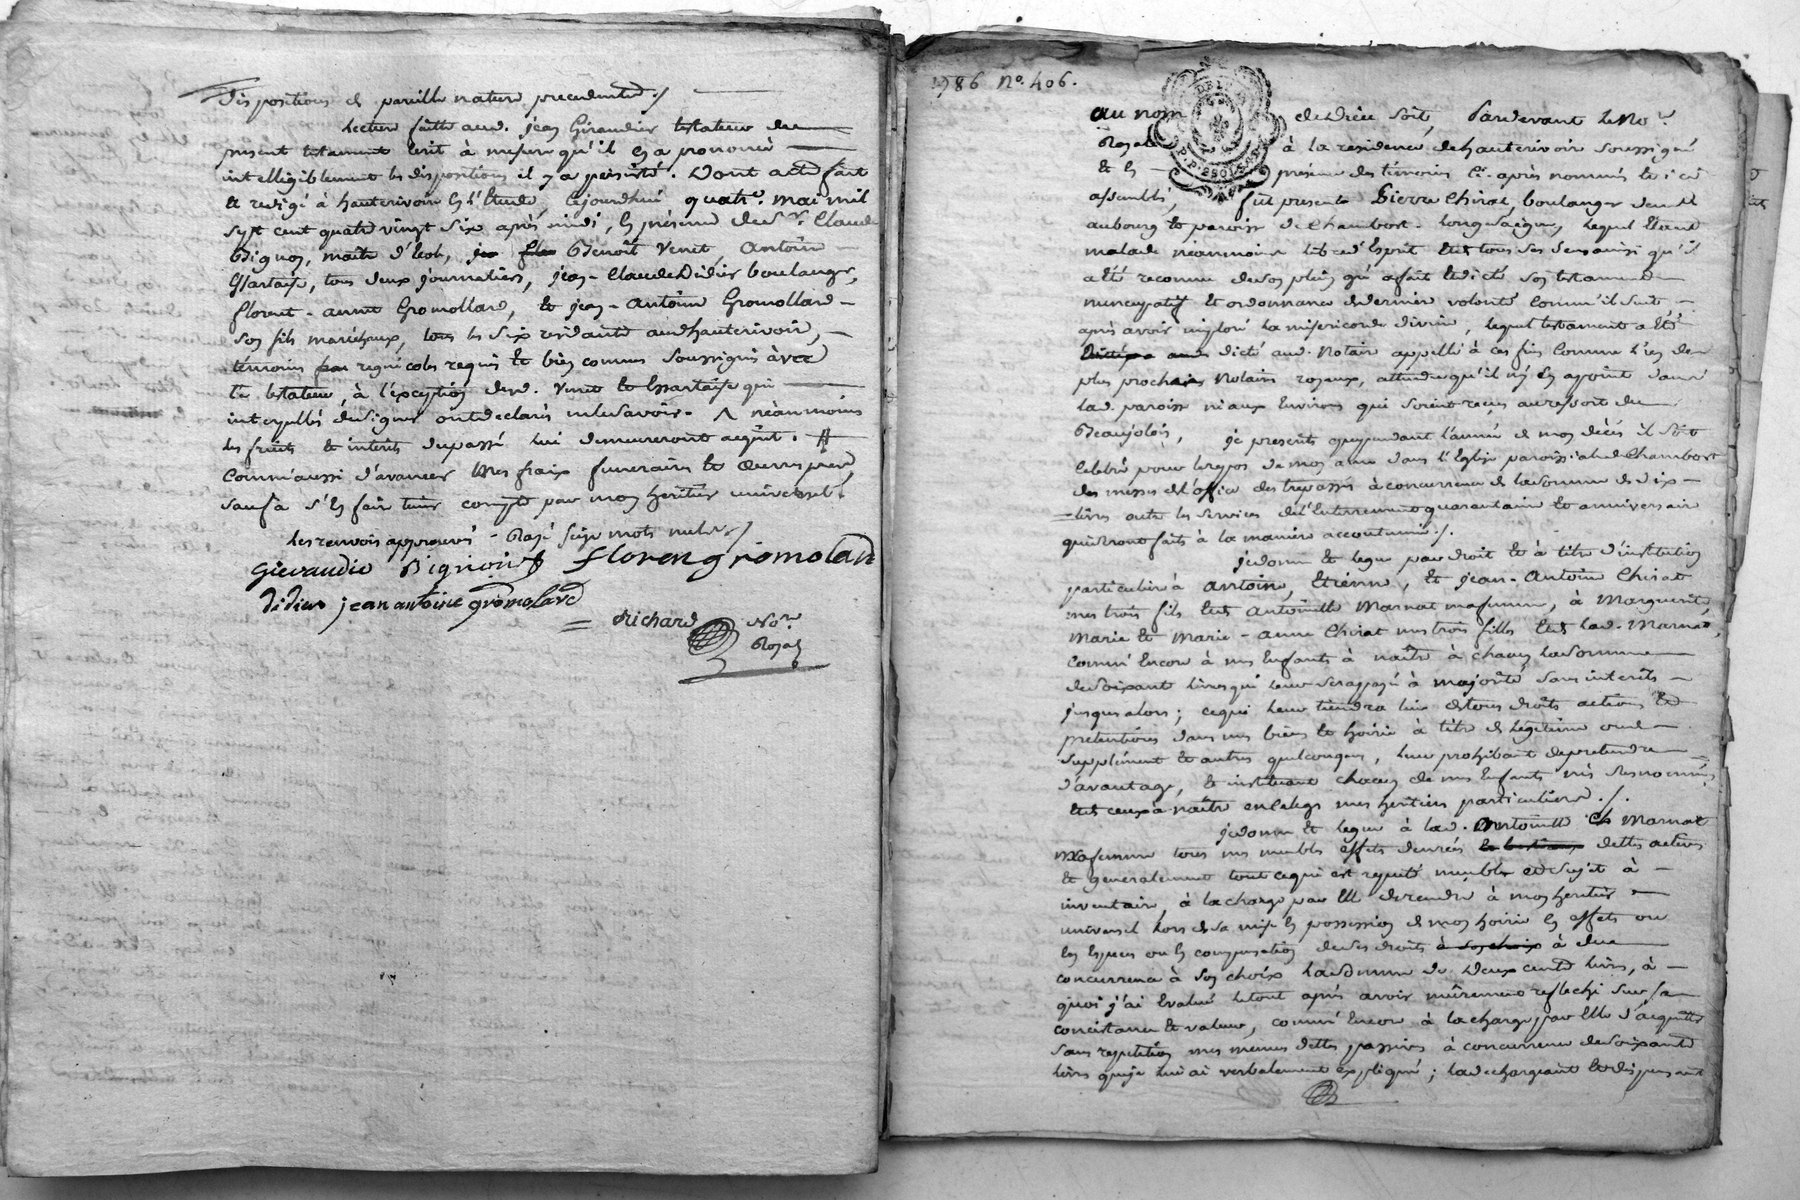 dispositions de pareille nature precedentes ./.
Lecture faitte aud. jean Giraudier testateur du
present testament ecrit à mesure qu'il en a prononcé
intelligiblement les dispositions il y a persisté. Dont acte fait
et redigé à hauterivoire en l'Etude, cejourdhui quatre. mai mil
sept cent quatre vingt six après midi, en présence de Sr. Claude
Bignon, maitre d'Ecole, Benoît Venet, Antoine
Essartaise, tous deux journaliers, jean-Claude Didier boulanger,
florent-anne Gromollard, et jean-Antoine Gromollard
son fils maréchaux, tous les six residants aud hauterivoire,
témoins regnicoles requis et bien connus soussignés avec
le testateur, à l'exception desd. Venet et Essartaise qui
interpellés de signer ont declarés ne le savoir. ∧ néanmoins
les fruits et interêts du passé lui demeureront acquit. #
comm'aussi d'avancer mes frais funeraires et œuvres pies,
sauf à s'en faire tenir compte par mon heritier universel.
Les renvois approuvés - Rayé seize mots nuls ./.
Gieraudie Bignon floren gromolard
didier jean antoine gromolard
= Richard Nore.
Royal
1786 No. 406.
au nom de Dieu soit, Pardevant le Nore.
Royal à la residence de hauterivoire soussigné
et en présence des témoins ci-après nommés le icé
assemblés, fut présent Pierre Chirat boulanger du
aubourg et paroisse de Chambost-Longesaigne, lequel étant
malade néanmoins libre d'Esprit et de tous ses sens ainsi qu'il
a été reconnu de son plein gré a fait et dicté son testament
nuncupatif et ordonnance de dernière volonté comm'il suit
après avoir imploré la misericorde divine, lequel testament a été
dicté aud. Notaire appellé à ces fins comme l'un des
plus prochains Notaires royaux, attendu qu'il n'y en a point dans
lad. paroisse ni aux Environs qui soient reçus au ressort du
Beaujolois, je prescris que pendant l'année de mon décès il soit
celebré pour le repos de mon ame dans l'Eglise paroissiale de Chambost
des messes de l'office des trepassés à concurrence de la somme de dix
=livres outre les services de l'Enterrement quarantaine et anniversaire
qui seront faits à la manière accoutumée ./.
je donne et legue par droit et à titre d'institution
particulière à Antoine, Etienne, et jean-Antoine Chirat
mes trois fils et d'Antoinette Marnat ma femme, à Marguerite,
Marie et Marie-Anne Chirat mes trois filles et de lad. Marnat,
comm'encore à mes Enfants à naître à chacun la somme
de soixante livres qui leur sera payé à majorité sans interêts
jusques alors; ce qui leur tiendra lieu de tous droits actions et
pretentions dans mes biens et hoirie à titre de légitime ou de
supplément et autres quelconques, leur prohibant de pretendre
d'avantage, et instituant chacun de mes Enfants nés dénommés
et de ceux à naître en ce legs mes heritiers particuliers ./.
je donne et legue à lad. Antoinette Marnat
Ma femme tous mes meubles effets denrées dettes actives
et generalement tout ce qui est reputé meuble et sujet à
inventaire à la charge par Elle de rendre à mon heritier
universel lors de sa mise en possession de mon hoirie en effets ou
en Especes ou en compensation de ses droits à due
concurrence à son choix la somme de Deux cents livres, à
quoi j'ai Evalué le tout après avoir mûrement reflechi sur sa
consistance et valeur, comm'Encore à la charge par Elle d'acquitter
sans repetition mes menues dettes passives à concurrence de soixante
livres que je lui ai verbalement expliqué; la dechargeant et dispensant